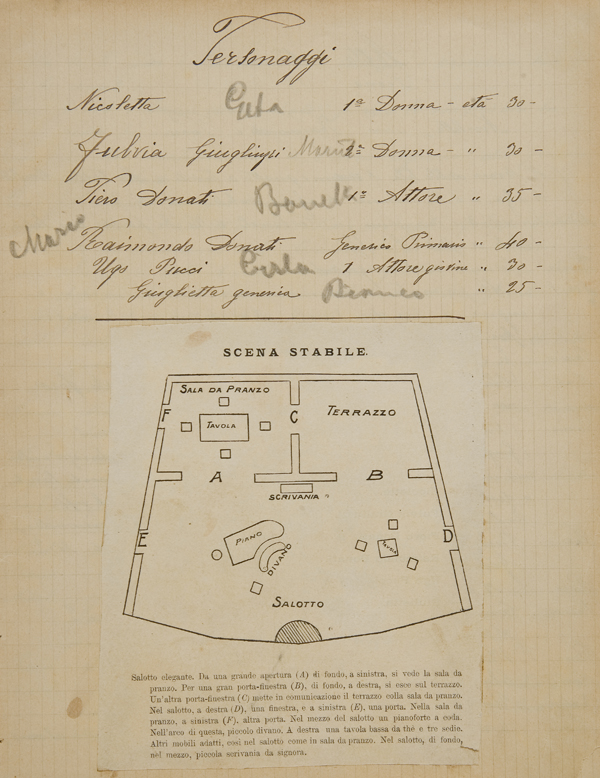 Personaggi
Nicoletta Geta 1ª Donna - età 30 -
Fulvia 2ª Donna - " 30 -
Piero Donati 1º Attore " 35 -
Mario
Raimondo Donati Generico Primario " 40 -
Ugo Pucci 1 Attore " 30 -
Giuglietta generica " 25 -
SCENA STABILE.
SALA DA PRANZO
F
TAVOLA
C
TERRAZZO
A
B
SCRIVANIA
E
PIANO
DIVANO
D
SALOTTO
Salotto elegante. Da una grande apertura (A) di fondo, a sinistra, si vede la sala da
pranzo. Per una gran porta-finestra (B), di fondo, a destra, si esce sul terrazzo.
Un'altra porta-finestra (C) mette in comunicazione il terrazzo colla sala da pranzo.
Nel salotto, a destra (D), una finestra, e a sinistra (E), una porta. Nella sala da
pranzo, a sinistra (F), altra porta. Nel mezzo del salotto un pianoforte a coda.
Nell'arco di questa, piccolo divano. A destra una tavola bassa da thé e tre sedie.
Altri mobili adatti, così nel salotto come in sala da pranzo. Nel salotto, di fondo,
nel mezzo, piccola scrivania da signora.